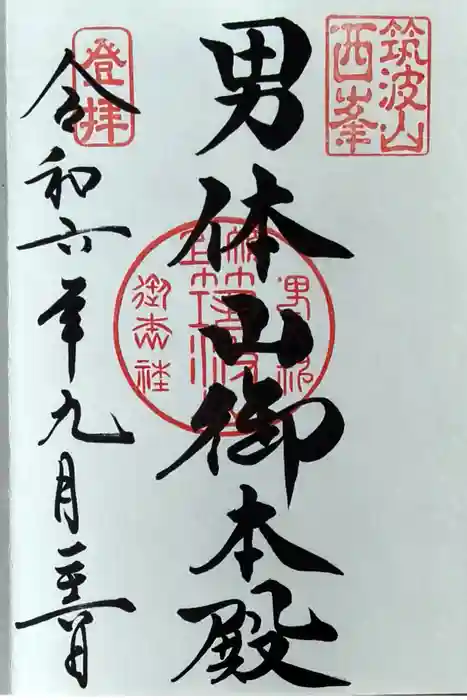 筑波山
西峯
男体山御本殿
登拝
令和六年九月二十六日